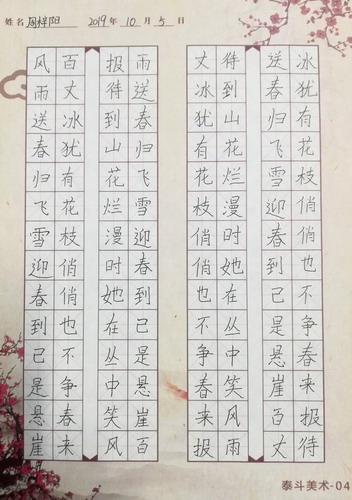 姓名 周梓阳 2019年10月5日
风雨送春归飞雪迎春到已是悬崖
百丈冰犹有花枝俏俏也不争春来
报待到山花烂漫时她在丛中笑风
雨送春归飞雪迎春到已是悬崖百
丈冰犹有花枝俏俏也不争春来报
待到山花烂漫时她在丛中笑风雨
送春归飞雪迎春到已是悬崖百丈
冰犹有花枝俏俏也不争春来报待
泰斗美术-04